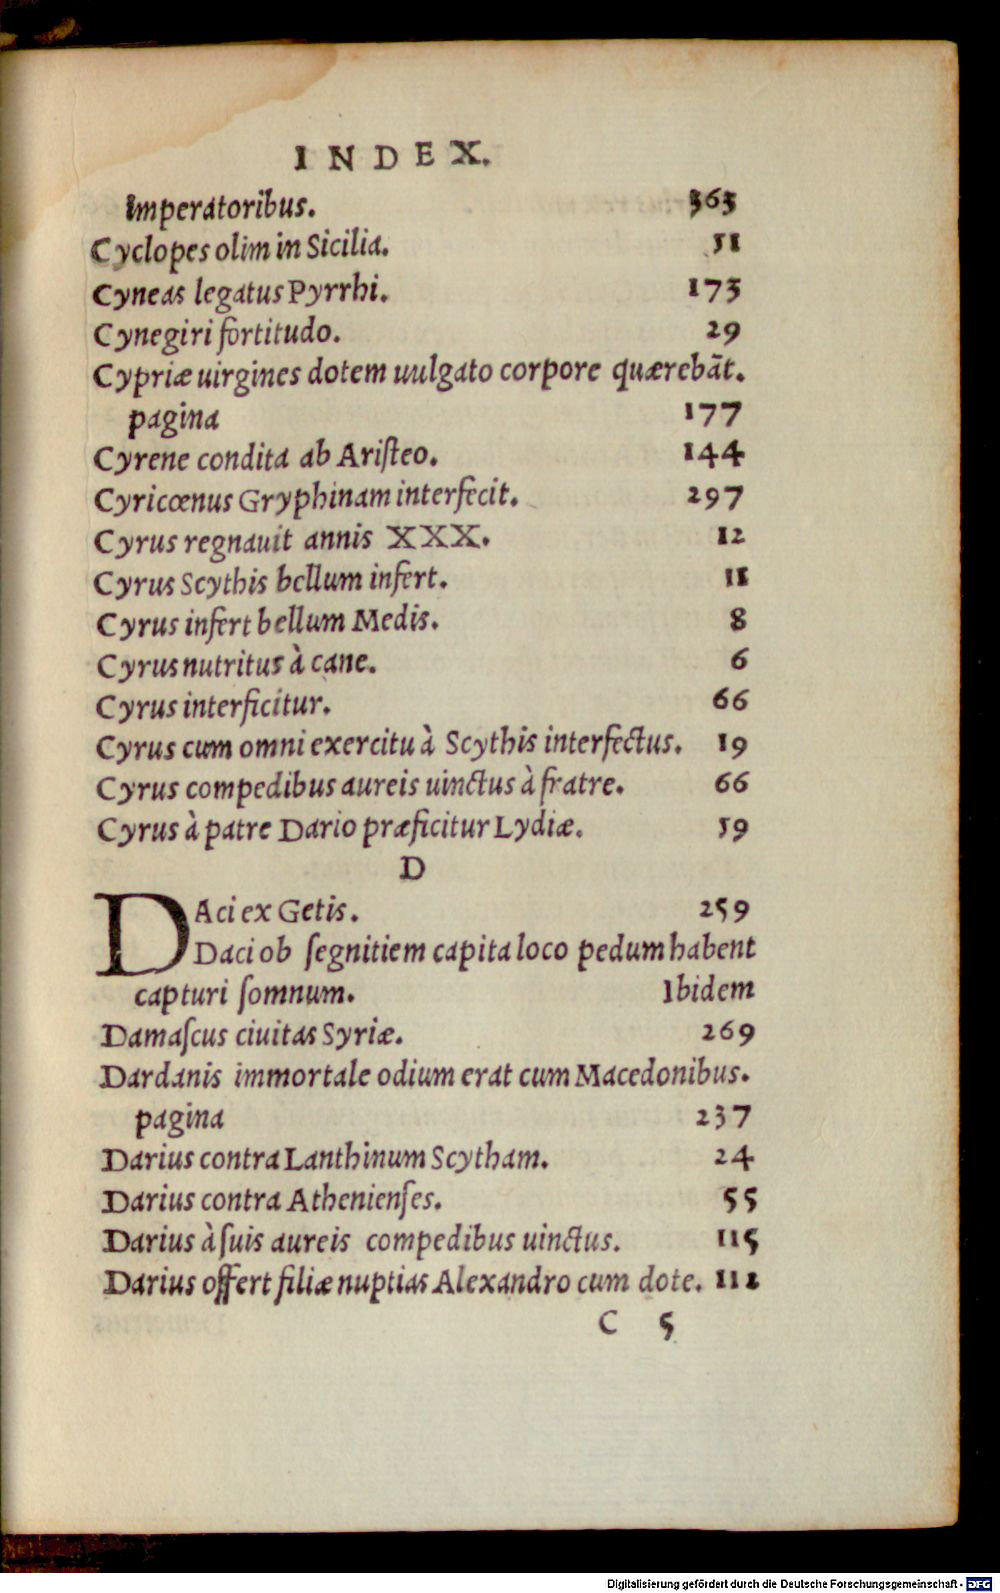 INDEX.
imperatoribus. 363
Cyclopes olim in Sicilia. 51
Cyneas legatus Pyrrhi. 173
Cynegiri fortitudo. 29
Cypriæ uirgines dotem uulgato corpore quærebāt.
pagina 177
Cyrene condita ab Ariſteo. 144
Cyricœnus Gryphinam interfecit. 297
Cyrus regnauit annis XXX. 12
Cyrus Scythis bellum infert. 11
Cyrus infert bellum Medis. 8
Cyrus nutritus à cane. 6
Cyrus interficitur. 66
Cyrus cum omni exercitu à Scythis interfectus. 19
Cyrus compedibus aureis uinctus à fratre. 66
Cyrus à patre Dario præficitur Lydiæ. 59
D
DAci ex Getis. 259
Daci ob ſegnitiem capita loco pedum habent
capturi ſomnum. Ibidem
Damaſcus ciuitas Syriæ. 269
Dardanis immortale odium erat cum Macedonibus.
pagina 237
Darius contra Lanthinum Scytham. 24
Darius contra Athenienſes. 55
Darius à ſuis aureis compedibus uinctus. 115
Darius offert filiæ nuptias Alexandro cum dote. 112
C 5
Digitalisierung gefördert durch die Deutsche Forschungsgemeinschaft - DFG